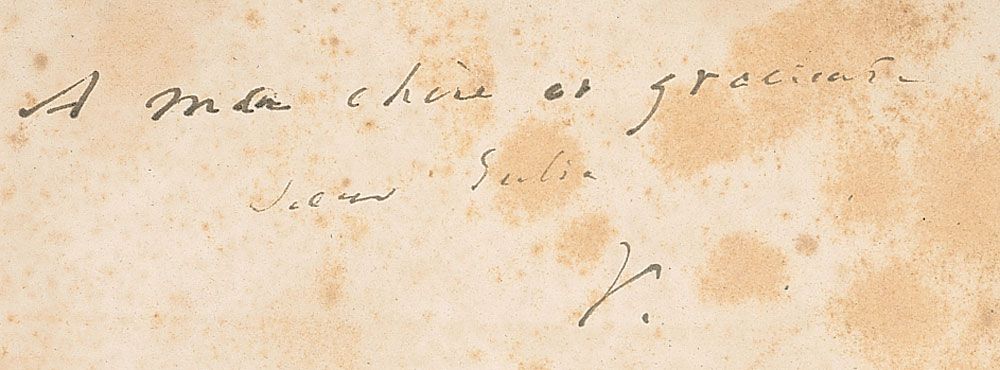 A ma chère et gracieuse
soeur Julie
V.